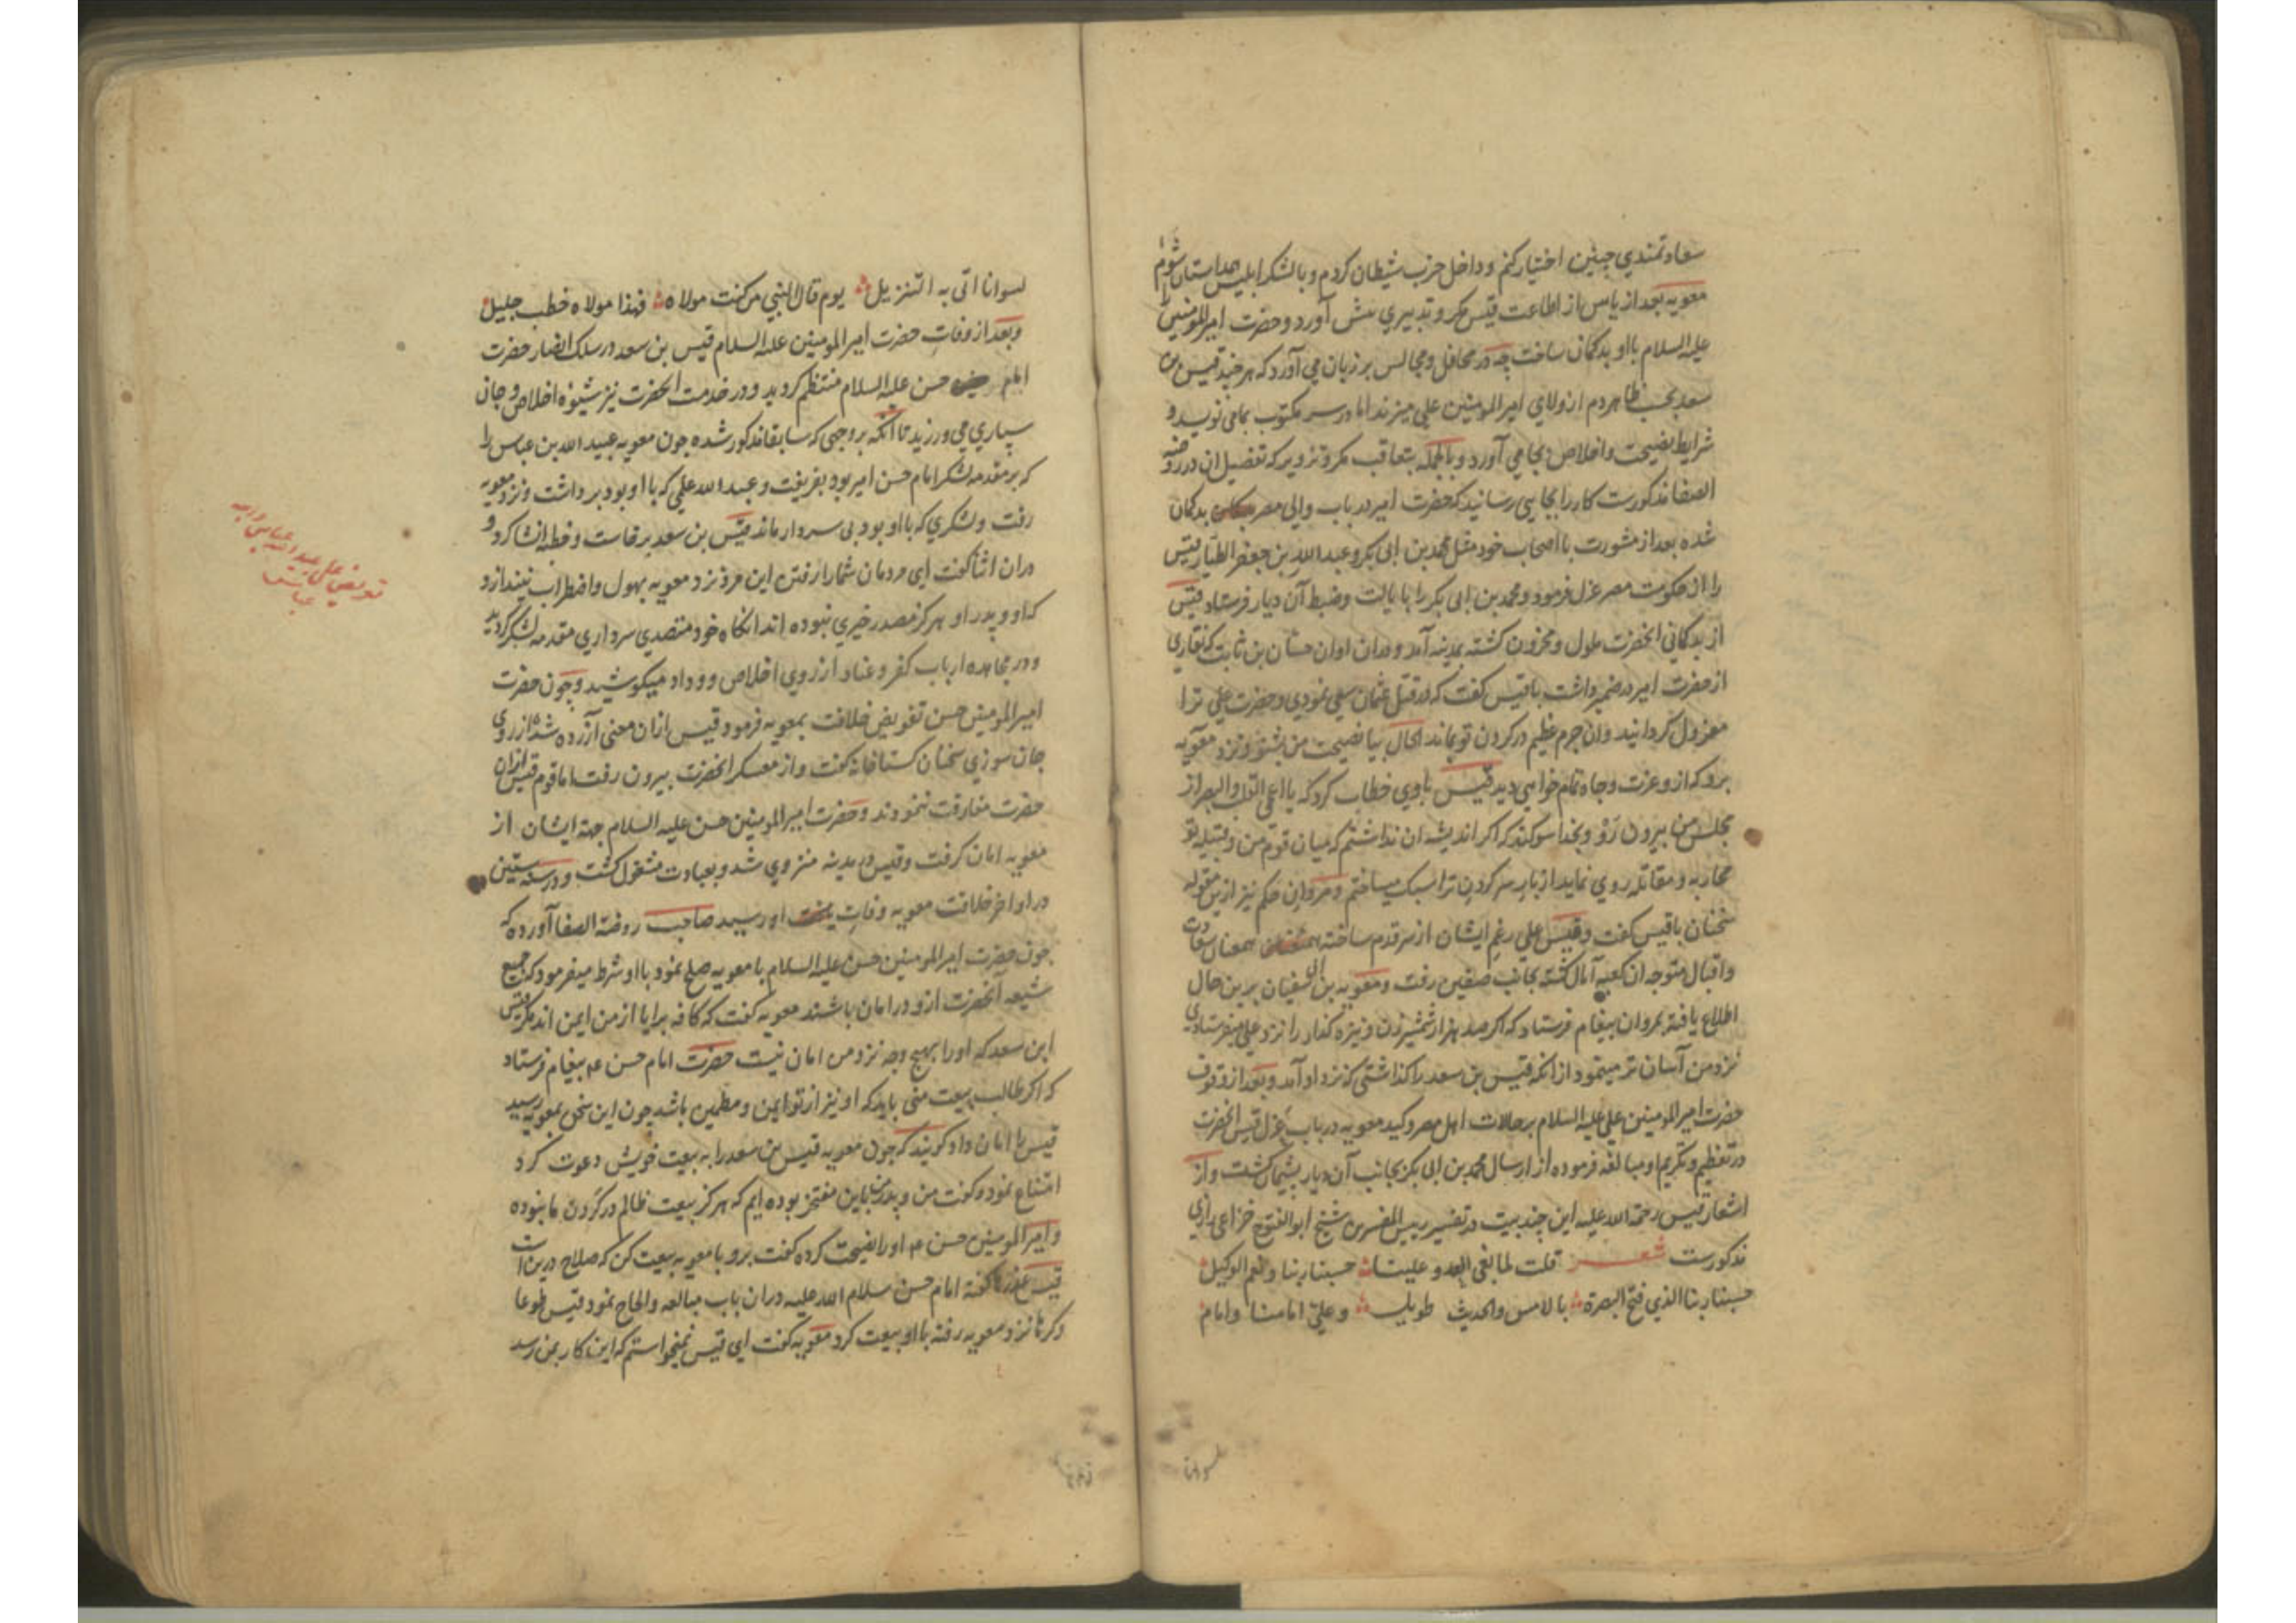 سعادتمندي چنین اختیار کنم و داخل حزب شیطان کردم و با لشکر ابلیس همداستان شوم
معویه بعد از یاس از اطاعت قیس مکر و تدبیري پیش آورد و حضرت امیرالمومنین را
علیه السلام با او بدکمان ساخت چه در محافل و مجالس بر زبان می آورد که هر چند قیس بن
سعد بحسب ظاهر دم از ولاي امیر المومنین علي میزند اما در سر مکتوب بما می نویسد و
شرایط نصیحت و اخلاص بجا می آورد و بالجمله بتعاقب مکر و تزویر که تفصیل ان در روضه
الصفا مذکورست کار را بجایي رسانید که حضرت امیر در باب والي مصر بدکمان
شده بعد از مشورت با اصحاب خود مثل محمد بن ابي بکر و عبد الله بن جعفر الطیار قیس
را از حکومت مصر عزل فرمود و محمد بن ابي بکر را بایالت و ضبط آن دیار فرستاد قیس
از بدکماني انحضرت ملول و محزون کشته بمدینه آمد و دران اوان حسان بن ثابت که نقاري
از حضرت امیر در ضمیر داشت با قیس کفت که در قتل عثمان سعي نمودي و حضرت علي ترا
معزول کردانید و ان جرم عظیم در کردن تو بماند الحال بیا نصیحت من بشنو و نزد معویه
برو که از و عزت و جاه تمام خواهي دید قیس با وي خطاب کرد که یا اعمي القلب والبصر از
مجلس من بیرون رو و بخدا سوکند که اکر اندیشه ان نداشتم که میان قوم من و قبیله تو
محاربه و مقاتله روي نماید از بار سر کردن ترا سبک میساختم و مروان حکم نیز ازین مقوله
سخنان با قیس کفت و قیس علي رغم ایشان از سر قدم ساخته همعنان سعادت
و اقبال متوجه ان کعبه آمال کشته بجانب صفین رفت و معویه بن ابی سفیان برین حال
اطلاع یافته بمروان پیغام فرستاد که اکر صد هزار شمشیر زن و نیزه کذار را نزد علي میفرستادي
نزد من آسان تر مینمود از انکه قیس بن سعد را کذاشتي که نزد او آمد و بعد از وقوف
حضرت امیر المومنین علي علیه السلام بر حالات اهل مصر و کید معویه در باب عزل قیس انحضرت
در تعظیم و تکریم او مبالغه فرموده از ارسال محمد بن ابي بکر بجانب آن دیار پشیمان کشت و از
اشعار قیس رحمة الله علیه این چند بیت در تفسیر رییس المفسرین شیخ ابو الفتوح خزاعي رازي
مذکورست شعر قلت لما بغي العدو علینا حسبنا ربنا و نعم الوکیل
حسبنا ربنا الذي فتح البصرة بالامس والحدیث طویل وعلي امامنا وامام
لسوانا اتی به التنزیل یوم قال النبي من کنت مولاه فهذا مولاه خطب جلیل
و بعد از وفات حضرت امیر المومنین علیه السلام قیس بن سعد در سلک انصار حضرت
امام حسن علیه السلام منتظم کردید و در خدمت انحضرت نیز شیوه اخلاص و جان
سپاري مي ورزید تا انکه بر وجهي که سابقا مذکور شده چون معویه عبید الله بن عباس را
که بر مقدمه لشکر امام حسن امیر بود بفریفت و عبید الله علمي که با او بود برداشت و نزد معویه
رفت و لشکري که با او بود بی سردار ماند قیس بن سعد برخاست و خطبه انشا کرد و
دران اثنا کفت اي مردمان شما را رفتن این مرد نزد معویه بهول و اضطراب نیندازد
که او و پدر او هرکز مصدر خیري نبوده اند انکاه خود متصدي سرداري مقدمه لشکر کردید
و در مجاهده ارباب کفر و عناد از روي اخلاص و وداد میکوشید و چون حضرت
امیر المومنین حسن تفویض خلافت بمعویه فرمود قیس ازان معني آزرده شد و از روي
جان سوزي سخنان کستاخانه کفت و از معسکر انحضرت بیرون رفت اما قوم قیس ازان
حضرت مفارقت ننمودند و حضرت امیر المومنین حسن علیه السلام جهة ایشان از
معویه امان کرفت و قیس در مدینه منزوي شد و بعبادت مشغول کشت و در سنه ستین
در اواخر خلافت معویه وفات او رسید صاحب روضة الصفا آورده که
چون حضرت امیر المومنین حسن علیه السلام با معویه صلح نمود با او شرط میفرمود که جمیع
شیعه آنحضرت ازو در امان باشند معویه کفت که کافه برایا از من ایمن اند مکر قیس
ابن سعد که او را بهیچ وجه نزد من امان نیست حضرت امام حسن عم پیغام فرستاد
که اکر طالب بیعت مني باید که او نیز از تو ایمن و مطمین باشد چون این سخن بمعویه رسید
قیس را امان داد کویند که چون معویه قیس بن سعد را به بیعت خویش دعوت کرد
امتناع نمود و کفت من و پدر من باین مفتخر بوده ایم که هرکز بیعت ظالم در کردن ما نبوده
و امیر المومنین حسن عم او را نصیحت کرده کفت برو با معویه بیعت کن که صلاح درین است
قیس عذرها کفته امام حسن سلام الله علیه دران باب مبالغه و الحاح نمود قیس طوعا
و کرها نزد معویه رفته با او بیعت کرد معویه کفت اي قیس نمیخواستم که این کار بمن رسد